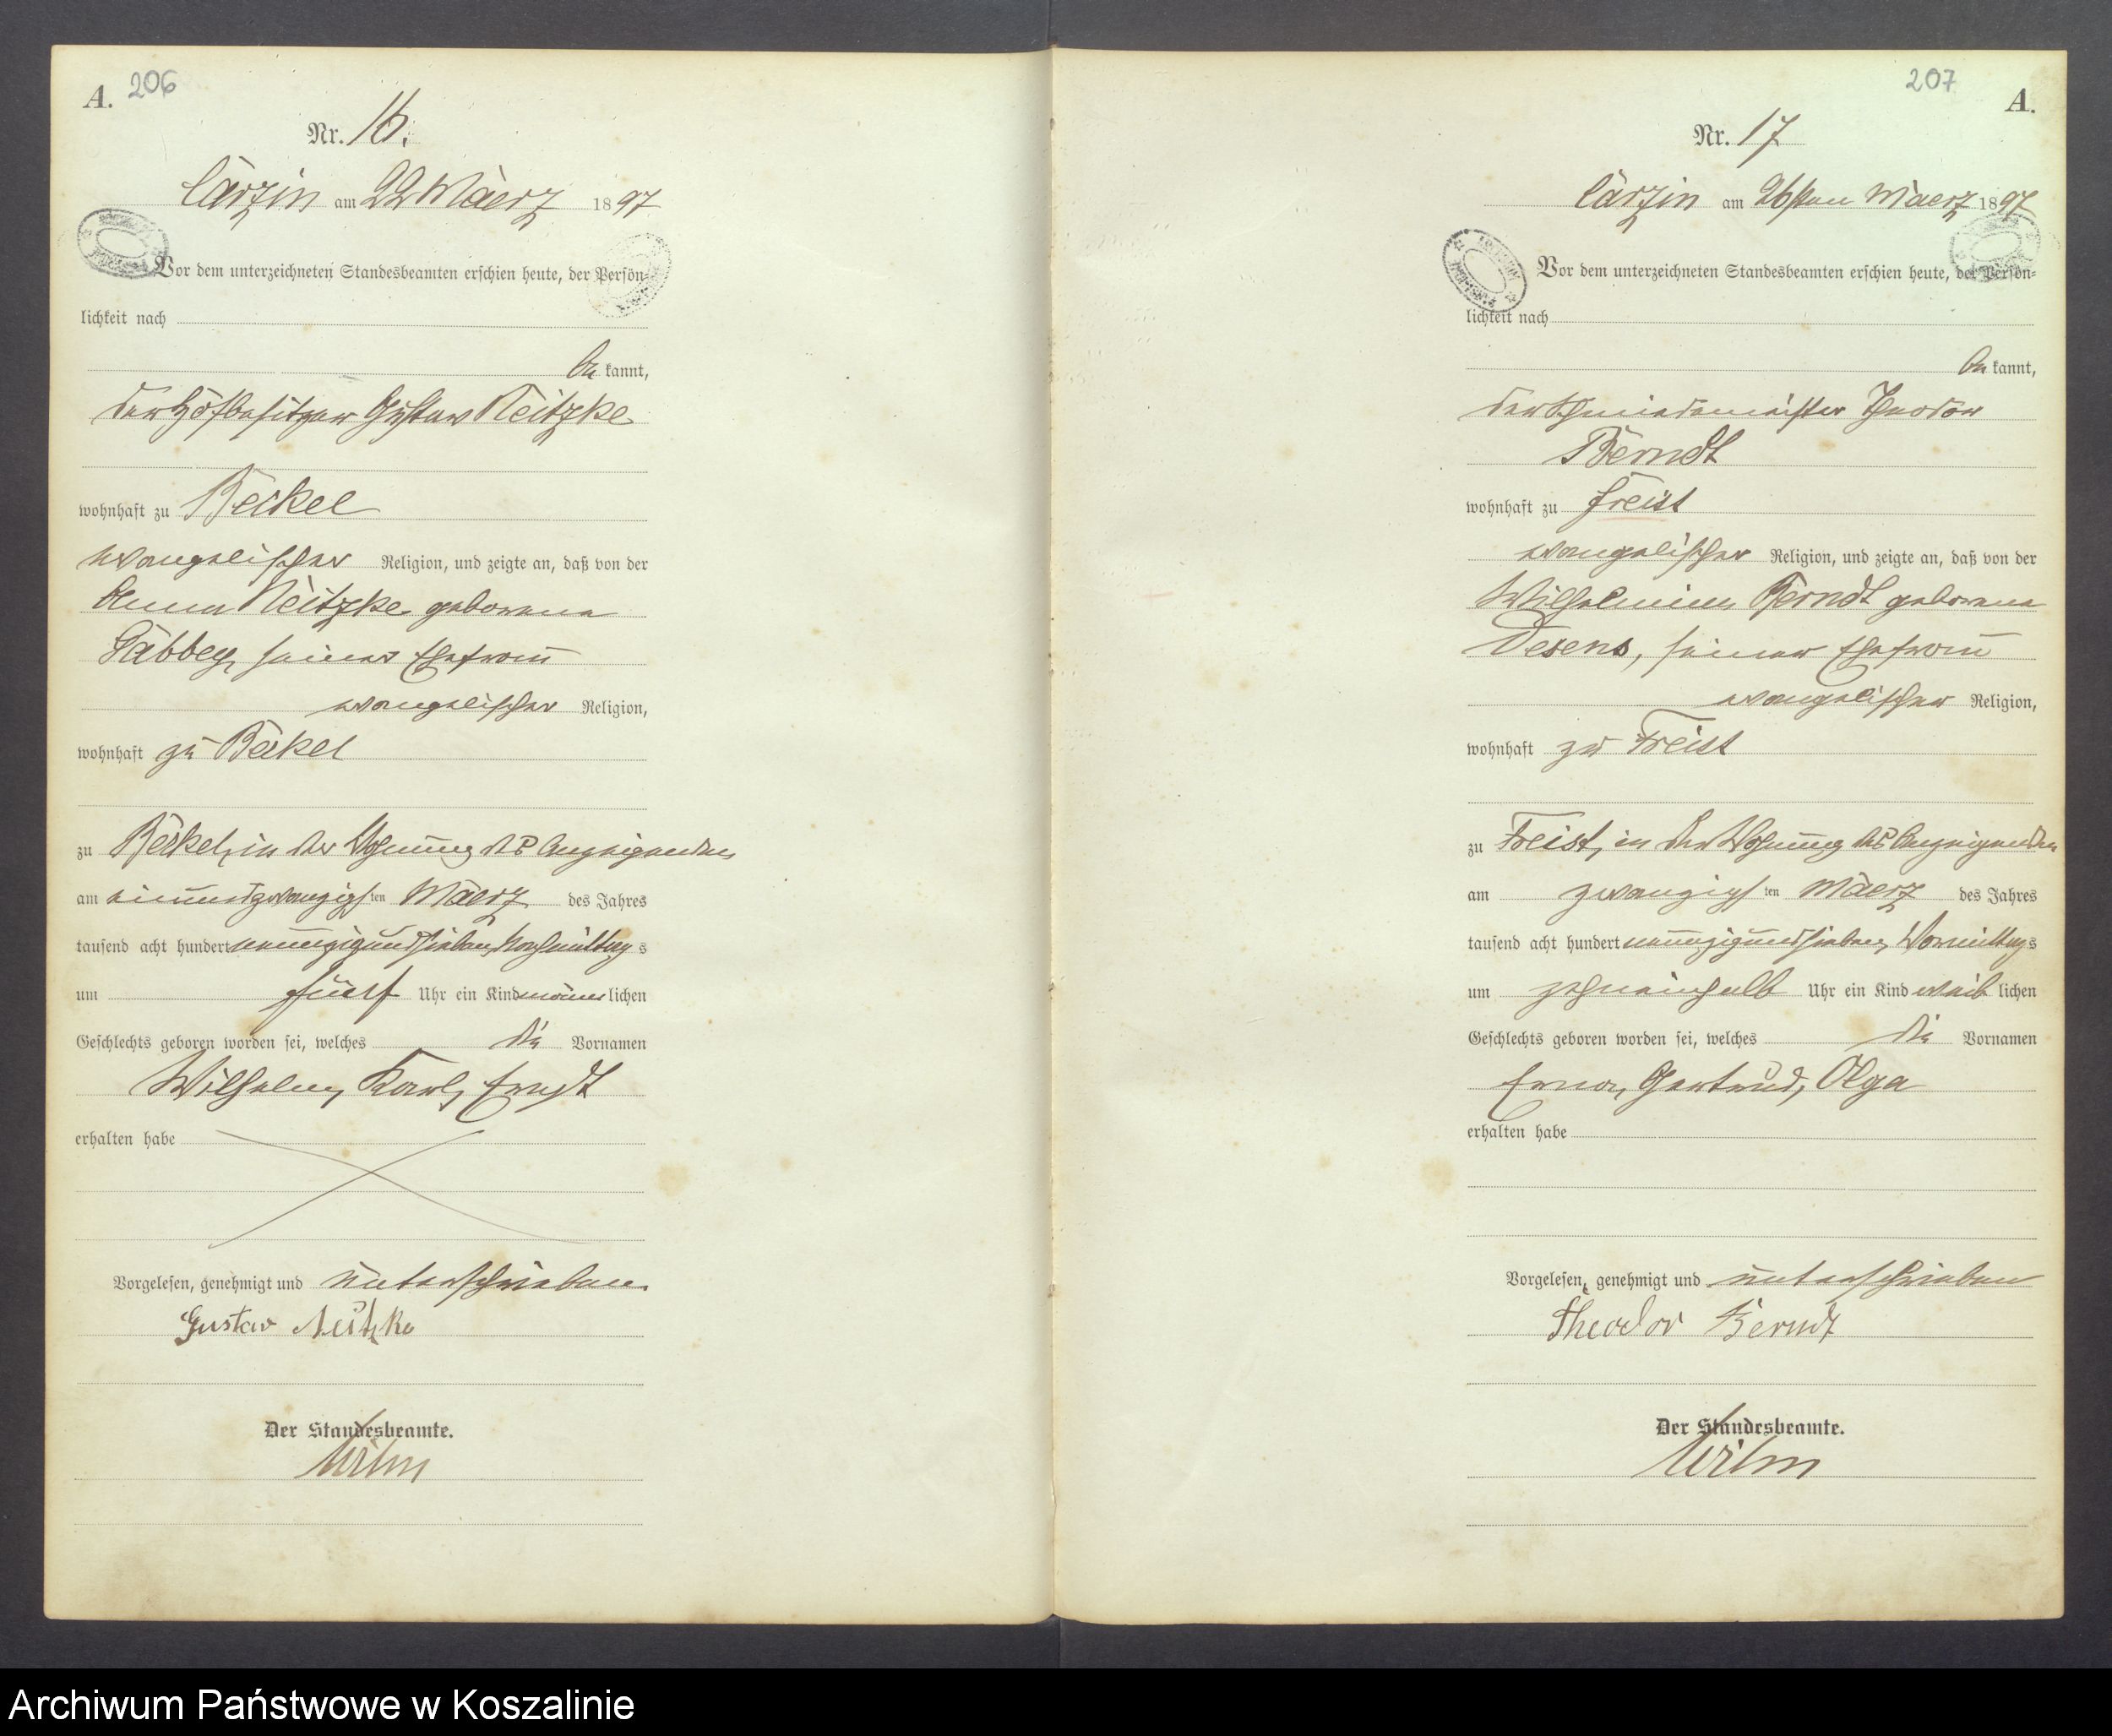 A. 206
Nr. 16.
Carzin am 22 Maerz 1897
Vor dem unterzeichneten Standesbeamten erschien heute, der Persön-
lichkeit nach
be kannt,
der Hofbesitzer Gustav Neitzke
wohnhaft zu Beckel
evangelischer Religion, und zeigte an, daß von der
Anna Neitzke geborene
Labbey, seiner Ehefrau
evangelischer Religion,
wohnhaft zu Beckel
zu Beckel, in der Wohnung des Anzeigenden
am einundzwanzigsten Maerz des Jahres
tausend acht hundert neunzigundsieben, Nachmittags
um fünf Uhr ein Kind männlichen
Geschlechts geboren worden sei, welches die Vornamen
Wilhelm, Karl, Ernst
erhalten habe
Vorgelesen, genehmigt und unterschrieben
Gustav Neitzke
Der Standesbeamte.
Wilm
207 A.
Nr. 17
Carzin am 26sten Maerz 1897
Vor dem unterzeichneten Standesbeamten erschien heute, der Persön-
lichkeit nach
be kannt,
der Schmiedemeister Theodor
Berndt
wohnhaft zu Freist
evangelischer Religion, und zeigte an, daß von der
Wilhelmine Berndt geborene
Desens, seiner Ehefrau
evangelischer Religion,
wohnhaft zu Freist
zu Freist, in der Wohnung des Anzeigenden
am zwanzigsten Maerz des Jahres
tausend acht hundert neunzigundsieben, Vormittags
um zehneinhalb Uhr ein Kind weiblichen
Geschlechts geboren worden sei, welches die Vornamen
Erna, Gertrud, Olga
erhalten habe
Vorgelesen, genehmigt und unterschrieben
Theodor Berndt
Der Standesbeamte.
Wilm
Archiwum Państwowe w Koszalinie